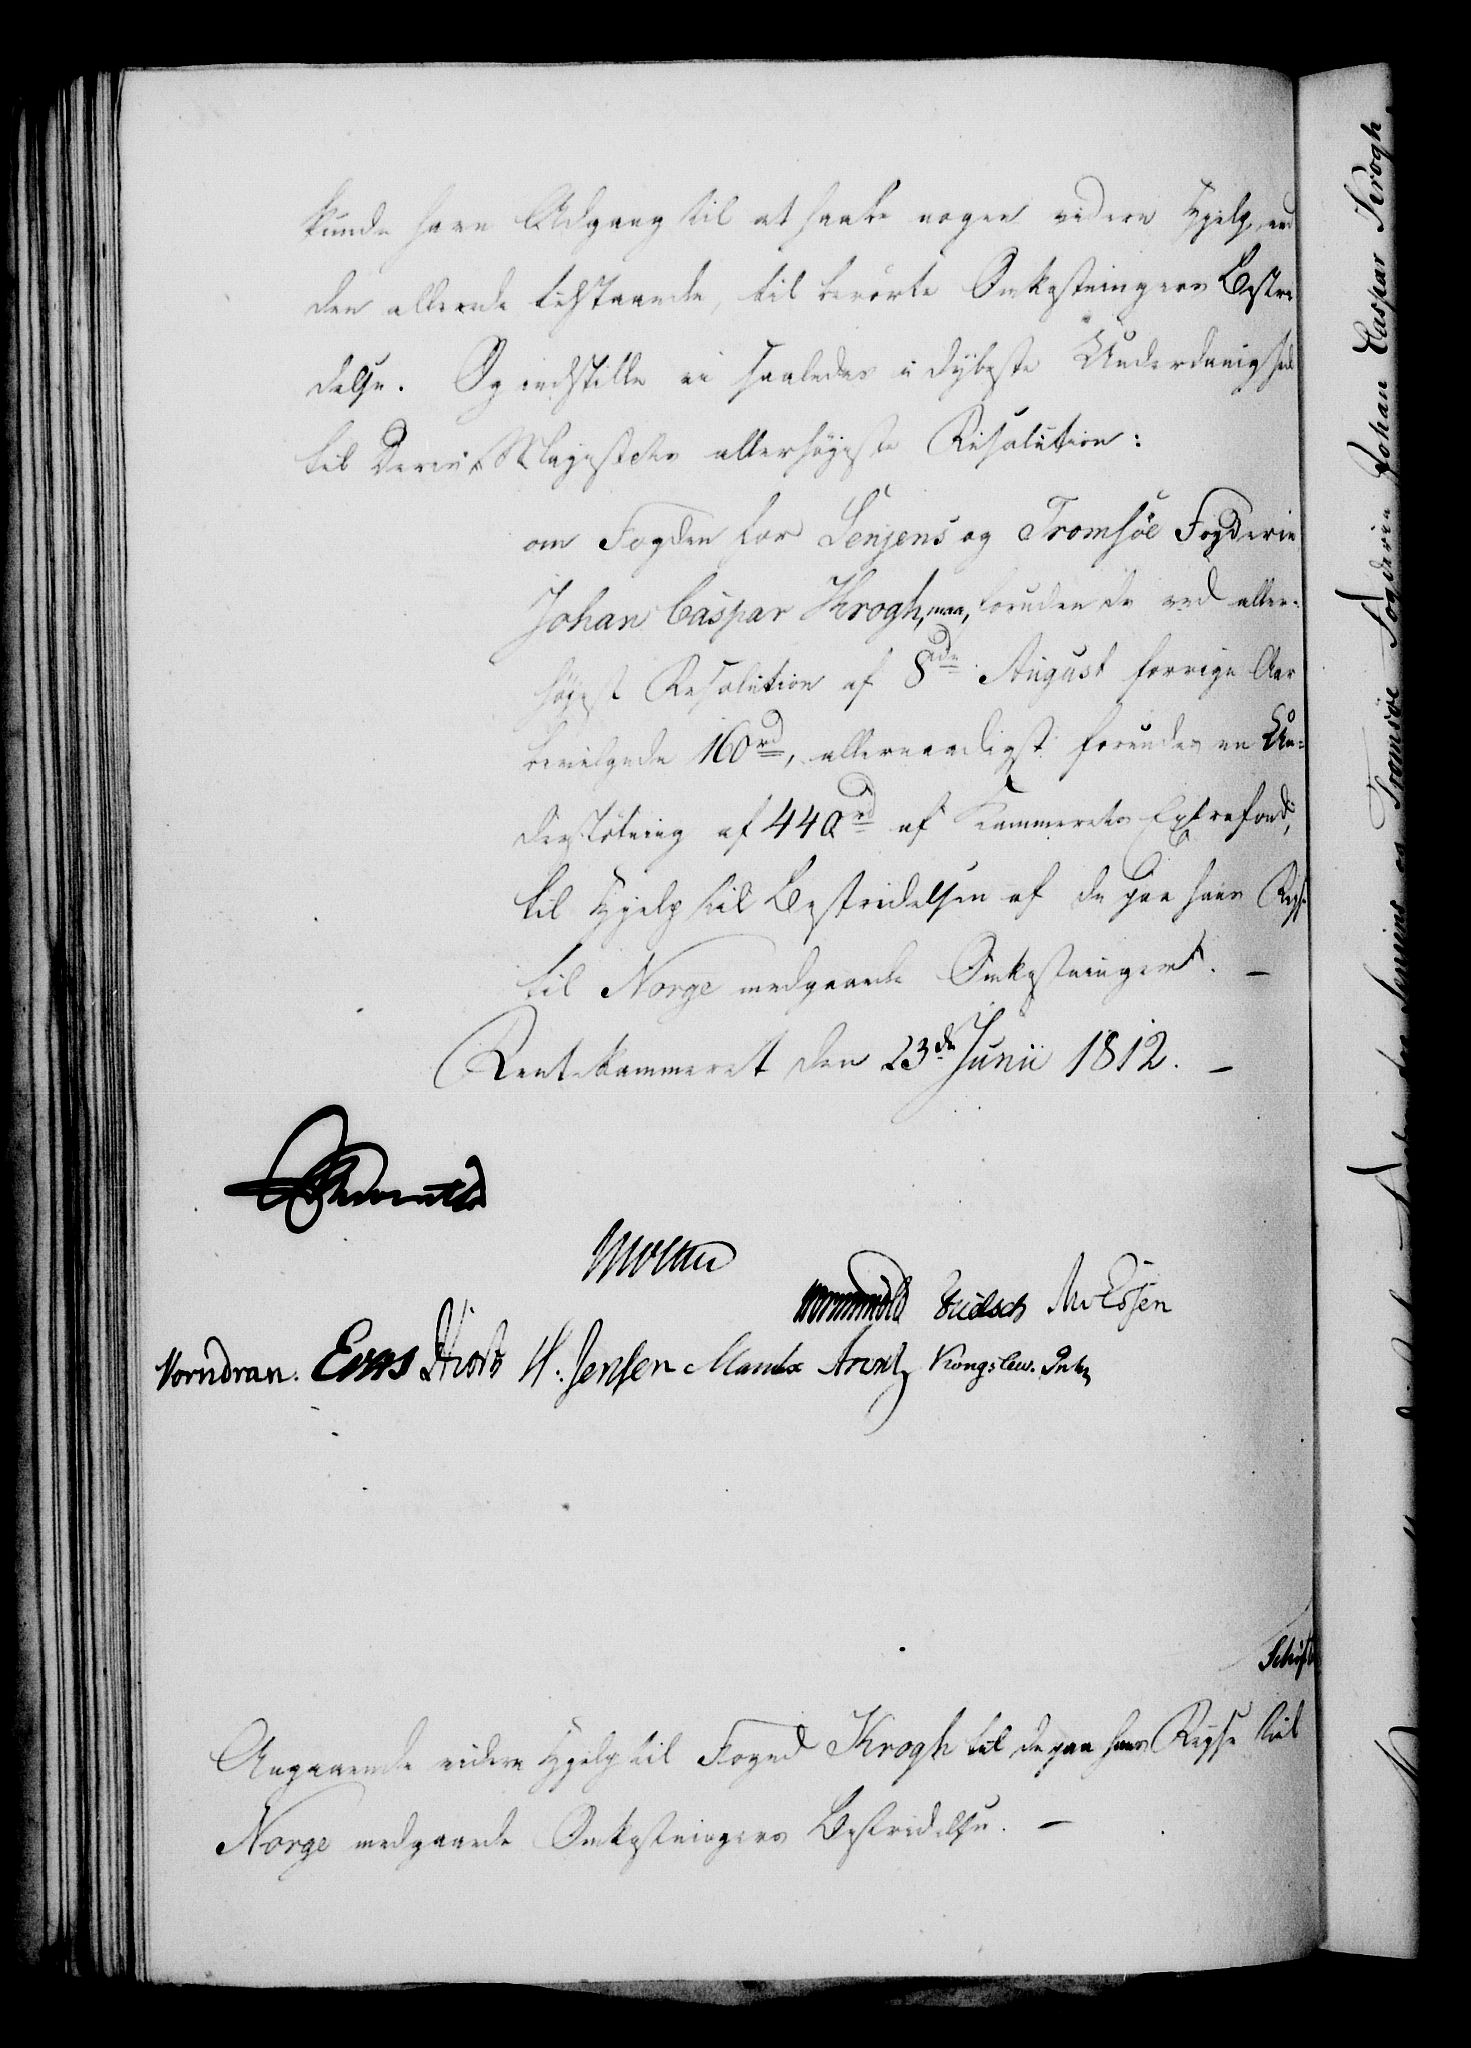 kunde have Adgang til at haabe nogen videre Hjelp, end
den allerede tilstaaede, til berørte Omkostningers Bestri
delse. Og indstille vi saaledes i dybeste Underdanighed
til Deres Majestæts allerhøyeste Resolution:
om Fogden for Senjens og Tromsøe Fogderie
Johan Caspar Krogh, maa, foruden de ved aller-
høyest Resolution af 8de August forrige Aar
bevilgede 160rd, allernaadigst forundes en Un=
derstøtning af 440rd af Kammerets Extrafond,
til Hjelp til Bestridelsen af de paa hans Reyse
til Norge medgaaede Omkostninger. —
Rentekammeret den 23de Junii 1812. —
Moltke
Wormskiold
Vorndran. Hiort H. Jensen Arentz
Schiøtt
Angaaende videre Hjelp til Foged Krogh til de paa hans Reyse til
Norge medgaaede Omkostningers Bestridelse. —
Fogderie Johan Caspar Krogh,
Senjens og Tromsøe